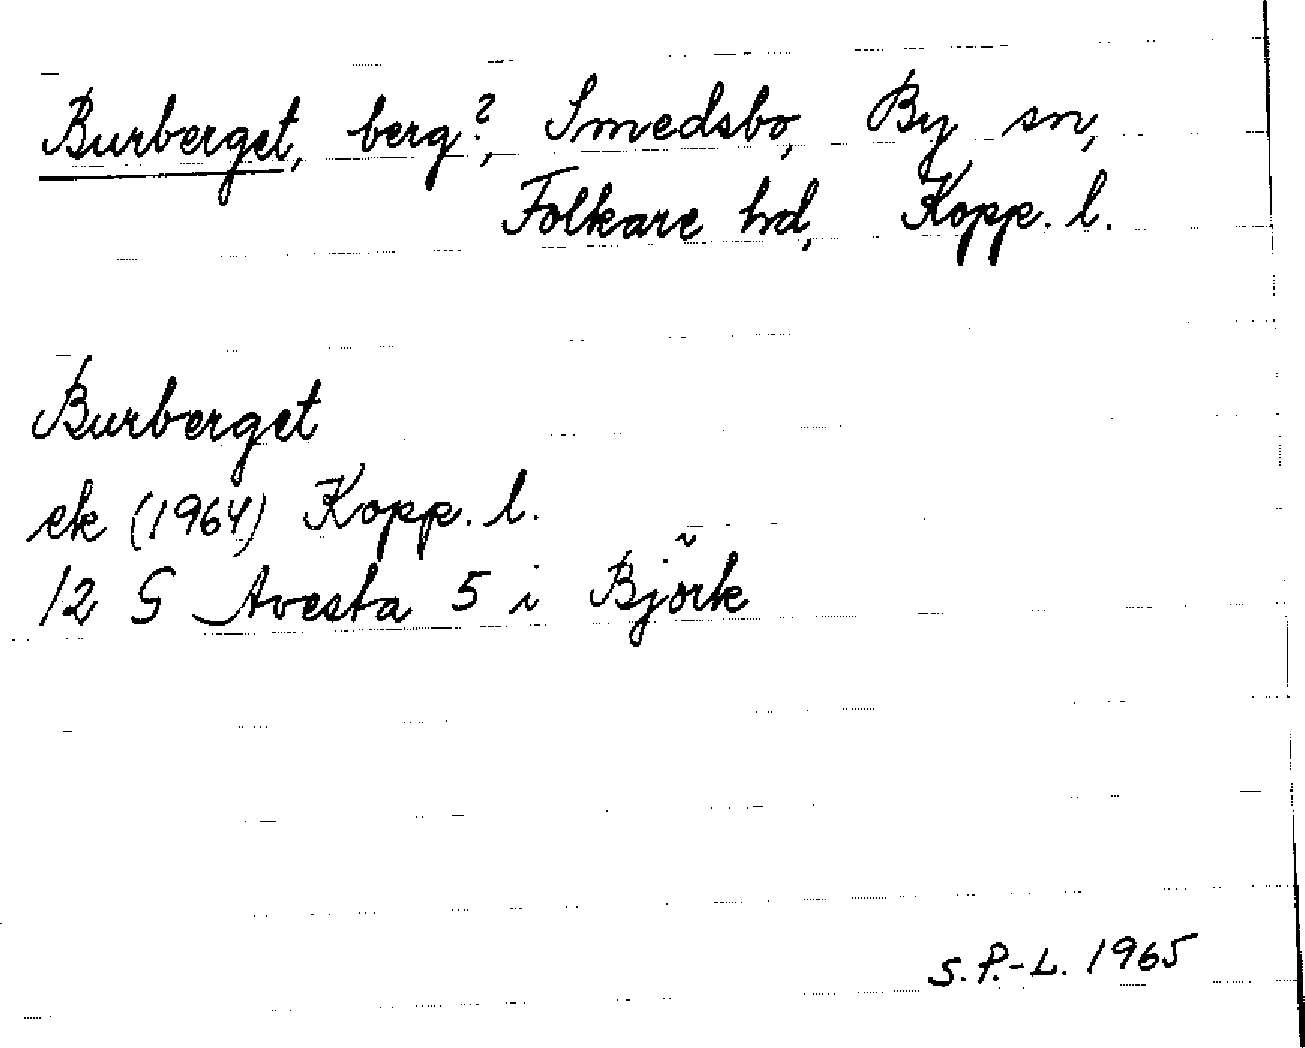 Burberget, berg?, Smedsbo, By sn,
Folkare hd, Kopp. l.
Burberget
ek (1964) Kopp. l.
12 G Avesta 5 i Björk
S.P.-L. 1965